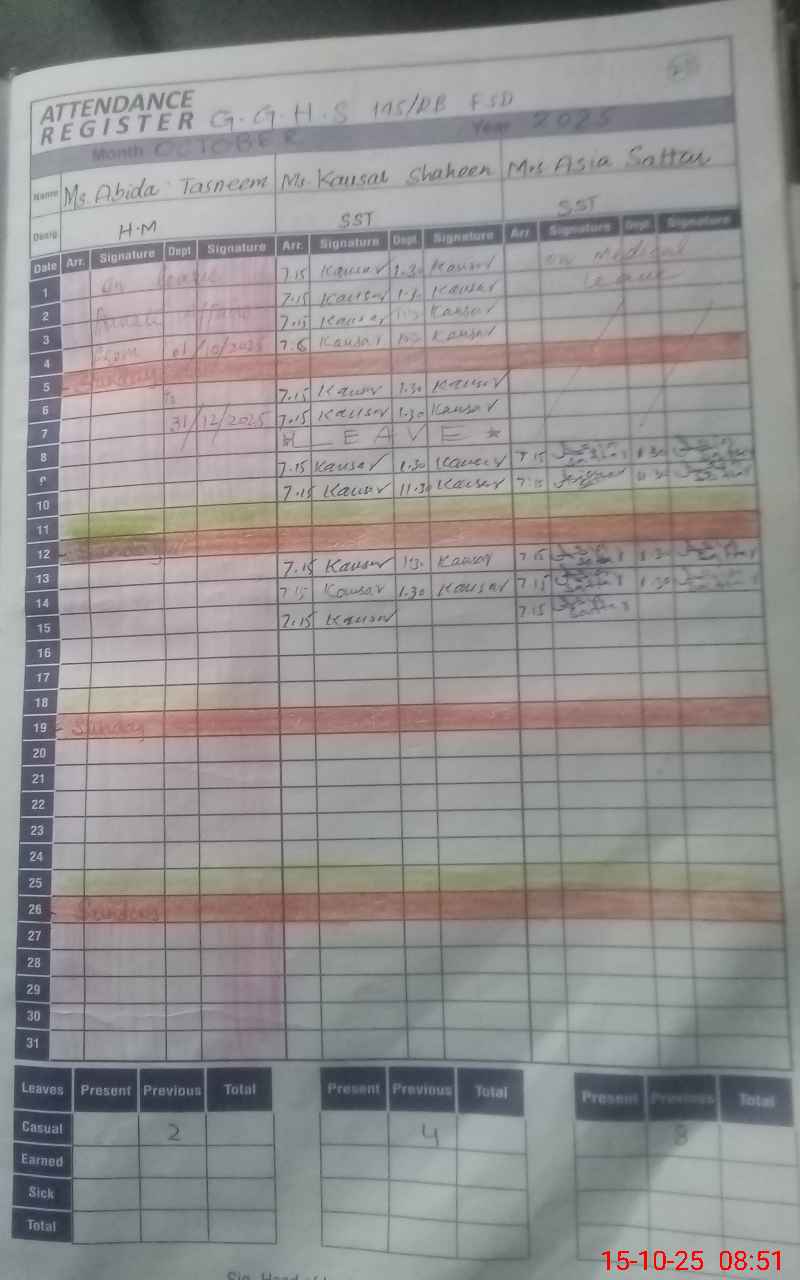 ATTENDANCE
REGISTER G.G.H.S 115/RB FSD
Month OCTOBER Year 2025
Name Ms. Abida Tasneem Ms. Kausar Shaheen Mrs Asia Sattar
Desig H.M SST SST
Date Arr. Signature Dept Signature Arr. Signature Dept. Signature Arr Signature Dept. Signature
1 On leave 7.15 Kausar 1.30 Kausar on Medical
2 7.15 Kausar Kausar Leave
3 From 01/10/2025 7.15 Kausar Kausar
4 Kausar Kausar
5 Sunday
6 To 7.15 Kausar 1.30 Kausar
7 31/12/2025 7.15 Kausar 1.30 Kausar
8 LEAVE
9 7.15 Kausar 1.30 Kausar 7.15 1.30
10 7.15 Kausar 11.30 Kausar 7.15
11
12 Sunday
13 7.15 Kausar Kausar 7.15 1.30
14 7.15 Kausar 1.30 Kausar 7.15 1.30
15 7.15 Kausar 7.15 Sattar
16
17
18
19 Sunday
20
21
22
23
24
25
26 Sunday
27
28
29
30
31
Leaves Present Previous Total Present Previous Total Present Previous Total
Casual 2 4 8
Earned
Sick
Total
15-10-25 08:51